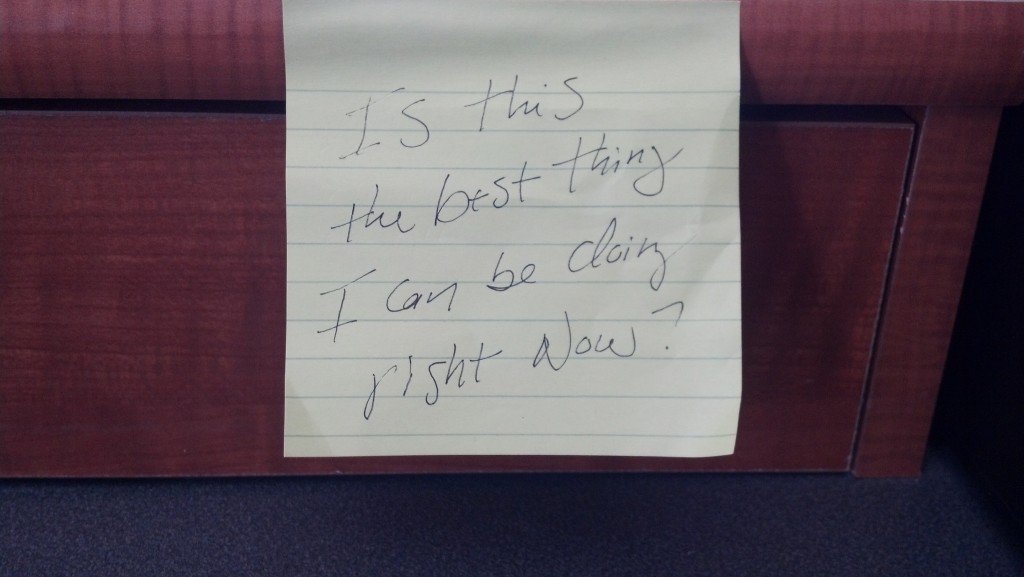 Is this
the best thing
I can be doing
right Now?